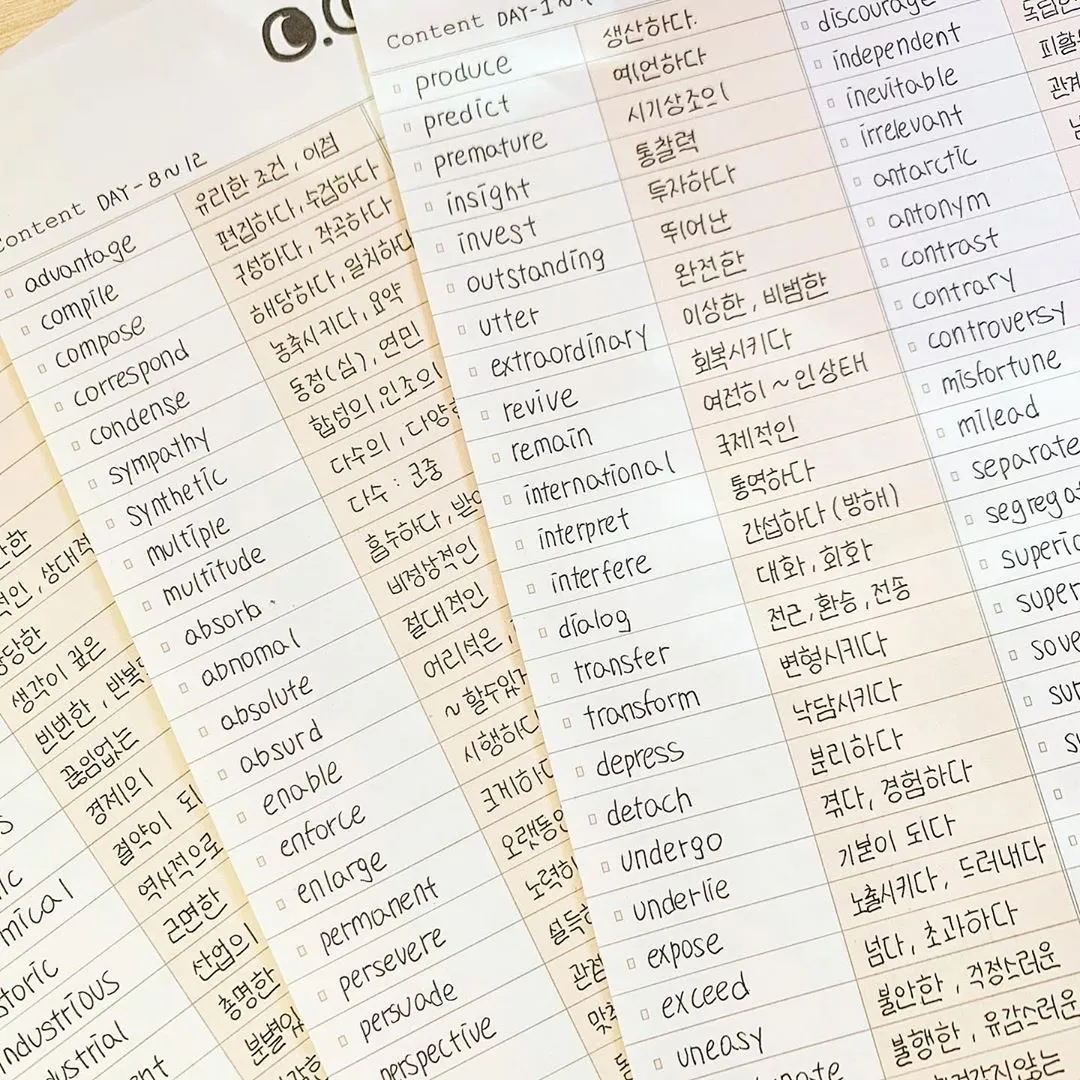 Content DAY-8~12
advantage 유리한 조건, 이점
compile 편집하다, 수집하다
compose 구성하다, 작곡하다
correspond 해당하다, 일치하다
condense 농축시키다, 요약
sympathy 동정(심), 연민
synthetic 합성의, 인조의
multiple 다수의, 다양한
multitude 다수 : 군중
absorb. 흡수하다,
abnomal 비정상적인
absolute 절대적인
absurd 어리석은,
enable ~할수있게
enforce 시행하
enlarge 크게하
permanent 오랫동안
persevere 노력하
persuade 설득
perspective 관점
Content DAY-1~
produce 생산하다.
predict 예언하다
premature 시기상조의
insight 통찰력
invest 투자하다
outstanding 뛰어난
utter 완전한
extraordinary 이상한, 비범한
revive 회복시키다
remain 여전히 ~인상태
international 국제적인
interpret 통역하다
interfere 간섭하다 (방해)
dialog 대화, 회화
transfer 전근, 환승, 전송
transform 변형시키다
depress 낙담시키다
detach 분리하다
undergo 겪다, 경험하다
underlie 기본이 되다
expose 노출시키다, 드러내다
exceed 넘다, 초과하다
uneasy 불안한, 걱정스러운
불행한, 유감스러운
discourage
independent
inevitable
irrelevant
antarctic
antonym
contrast
contrary
controversy
misfortune
milead
separate
segregat
superio
super
sove
sur
상대적
당한
생각이 깊은
빈번한, 반복
끊임없는
경제의
mical 절약이 되
storic 역사적으로
industrious 근면한
dustrial 산업의
총명한
분별있